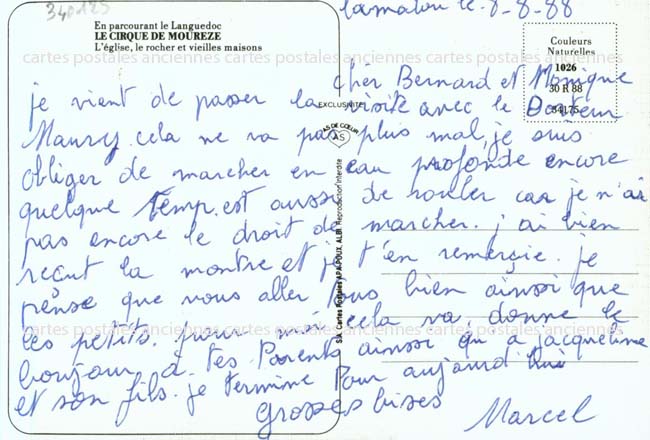 340125
En parcourant le Languedoc
LE CIRQUE DE MOUREZE
L'église, le rocher et vieilles maisons
Lamalou le . 8 - 8 - 88
Couleurs
Naturelles
1026
30 R 88
84175
cartes postales anciennes cartes postales anciennes cartes postales anciennes
EXCLUSIVITÉ
AS DE CŒUR
AS
S.K. Cartes Postales APA-POUX, ALBI Reproduction interdite
cher Bernard et Monique
je vient de passer la visite avec le Docteur
Maury. cela ne va pas plus mal, je suis
obliger de marcher en eau profonde encore
quelque temp. est aussi de rouler car je n'ai
pas encore le droit de marcher. j'ai bien
recut la montre et je t'en remerçie. je
pense que vous aller tous bien ainsi que
les petits. pour moi cela va. donne le
cartes postales anciennes cartes postales anciennes cartes postales anciennes
boujour a tes Parents ainsi qu a jacqueline
et son fils. je termine pour aujourd'hui
Grosses bises
Marcel